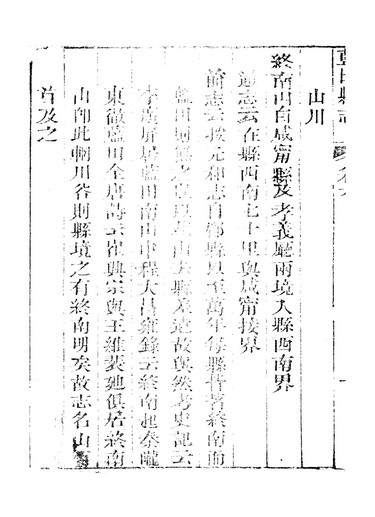 藍田縣志 卷六
山川
終南山自咸甯縣及孝義廳兩境入縣西南界
通志云在縣西南七十里與咸甯接界
前志云按元和志自鄠縣以至萬年每縣皆著終南而
藍田則無之
山去縣差遠故與然考史記云
李廣屏居藍田南山中程大昌雍錄云終南起秦隴
東徹藍田全唐詩云崔興宗與王維裴廸俱居終南
山卽此輞川谷則縣境之有終南明矣故志名山
首及之